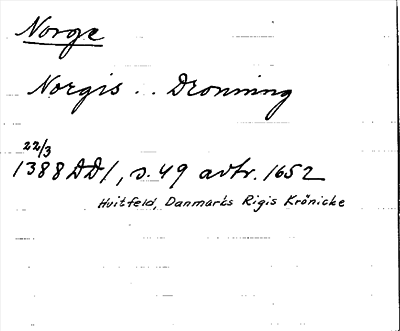 Norge
Norgis .. Dronning
22/3
1388 DD/, s. 49 avtr. 1652
Huitfeld, Danmarks Rigis Krönicke